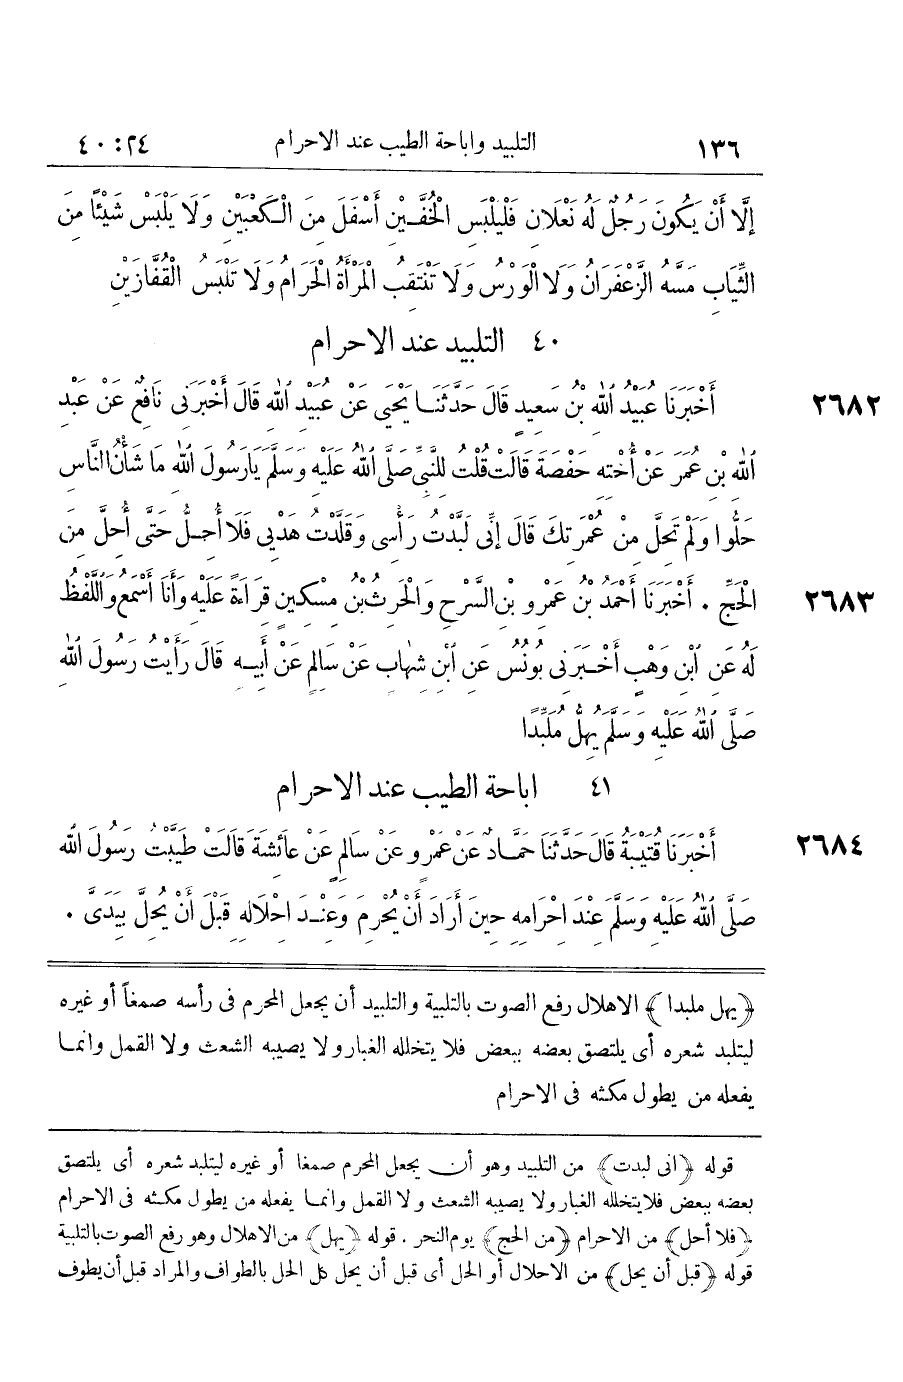 ١٣٦ التلبيد واباحة الطيب عند الاحرام ٢٤: ٤٠
إِلَّا أَنْ يَكُونَ رَجُلٌ لَهُ نَعْلَانِ فَلْيَلْبَسِ الْخُفَّيْنِ أَسْفَلَ مِنَ الْكَعْبَيْنِ وَلَا يَلْبَسْ شَيْئًا مِنَ
الثِّيَابِ مَسَّهُ الزَّعْفَرَانُ وَلَا الْوَرْسُ وَلَا تَنْتَقِبُ الْمَرْأَةُ الْحَرَامُ وَلَا تَلْبَسُ الْقُفَّازَيْنِ
٤٠ التلبيد عند الاحرام
٢٦٨٢ أَخْبَرَنَا عُبَيْدُ اللهِ بْنُ سَعِيدٍ قَالَ حَدَّثَنَا يَحْيَى عَنْ عُبَيْدِ اللهِ قَالَ أَخْبَرَنِى نَافِعٌ عَنْ عَبْدِ
اللهِ بْنِ عُمَرَ عَنْ أُخْتِهِ حَفْصَةَ قَالَتْ قُلْتُ لِلنَّبِيِّ صَلَّى اللهُ عَلَيْهِ وَسَلَّمَ يَا رَسُولَ اللهِ مَا شَأْنُ النَّاسِ
حَلُّوا وَلَمْ تَحِلَّ مِنْ عُمْرَتِكَ قَالَ إِنِّى لَبَّدْتُ رَأْسِى وَقَلَّدْتُ هَدْيِى فَلَا أُحِلُّ حَتَّى أُحِلَّ مِنَ
٢٦٨٣ الْحَجِّ . أَخْبَرَنَا أَحْمَدُ بْنُ عَمْرِو بْنِ السَّرْحِ وَالْحَرِثُ بْنُ مِسْكِينٍ قِرَاءَةً عَلَيْهِ وَأَنَا أَسْمَعُ وَاللَّفْظُ
لَهُ عَنِ ابْنِ وَهْبٍ أَخْبَرَنِى يُونُسُ عَنِ ابْنِ شِهَابٍ عَنْ سَالِمٍ عَنْ أَبِيهِ قَالَ رَأَيْتُ رَسُولَ اللهِ
صَلَّى اللهُ عَلَيْهِ وَسَلَّمَ يُهِلُّ مُلَبِّدًا
٤١ اباحة الطيب عند الاحرام
٢٦٨٤ أَخْبَرَنَا قُتَيْبَةُ قَالَ حَدَّثَنَا حَمَّادٌ عَنْ عَمْرٍو عَنْ سَالِمٍ عَنْ عَائِشَةَ قَالَتْ طَيَّبْتُ رَسُولَ اللهِ
صَلَّى اللهُ عَلَيْهِ وَسَلَّمَ عِنْدَ إِحْرَامِهِ حِينَ أَرَادَ أَنْ يُحْرِمَ وَعِنْدَ إِحْلَالِهِ قَبْلَ أَنْ يُحِلَّ بِيَدَىَّ .
﴿يهل ملبدا﴾ الاهلال رفع الصوت بالتلبية والتلبيد أن يجعل المحرم فى رأسه صمغاً أو غيره
ليتلبد شعره أى يلتصق بعضه ببعض فلا يتخلله الغبار ولا يصيبه الشعث ولا القمل وانما
يفعله من يطول مكثه فى الاحرام
قوله ﴿انى لبدت﴾ من التلبيد وهو أن يجعل المحرم صمغا أو غيره ليتلبد شعره أى يلتصق
بعضه ببعض فلا يتخلله الغبار ولا يصيبه الشعث ولا القمل وانما يفعله من يطول مكثه فى الاحرام
﴿فلا أحل﴾ من الاحرام ﴿من الحج﴾ يوم النحر . قوله ﴿يهل﴾ من الاهلال وهو رفع الصوت بالتلبية
قوله ﴿قبل أن يحل﴾ من الاحلال أو الحل أى قبل أن يحل كل الحل بالطواف والمراد قبل أن يطوف